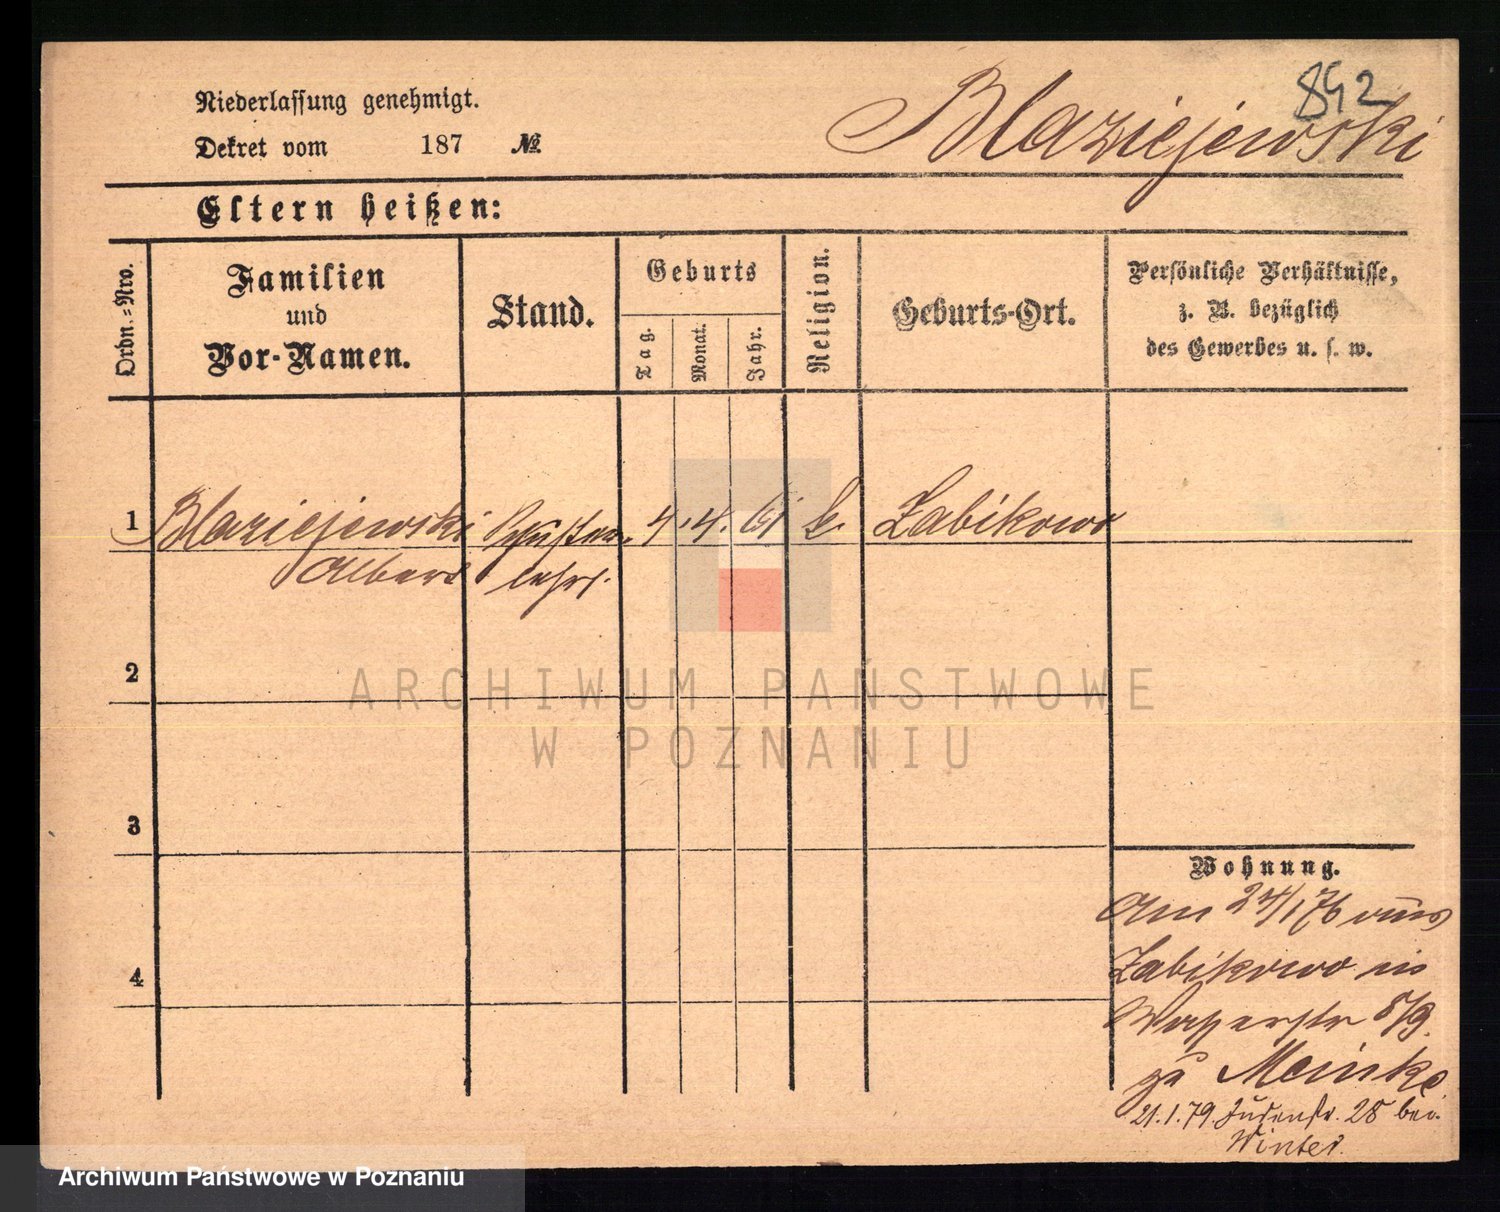 892
Niederlassung genehmigt.
Blaziejewski
Dekret vom 187 №
Eltern heißen:
Ordn.-Nro.
Familien
und
Vor-Namen.
Stand.
Geburts
Tag.
Monat.
Jahr.
Religion.
Geburts-Ort.
Persönliche Verhältnisse,
z. B. bezüglich
des Gewerbes u. s. w.
1 Blaziejewski Schuster 4. 4. 61 k. Zabikowo
Albert lehrl.
2
3
4
Wohnung.
Am 24/1 76 aus
Zabikowo in
Wasserstr 8/9.
zu Meinke
21.1.79. Judenstr. 28 bei
Winter.
ARCHIWUM PAŃSTWOWE
W POZNANIU
Archiwum Państwowe w Poznaniu